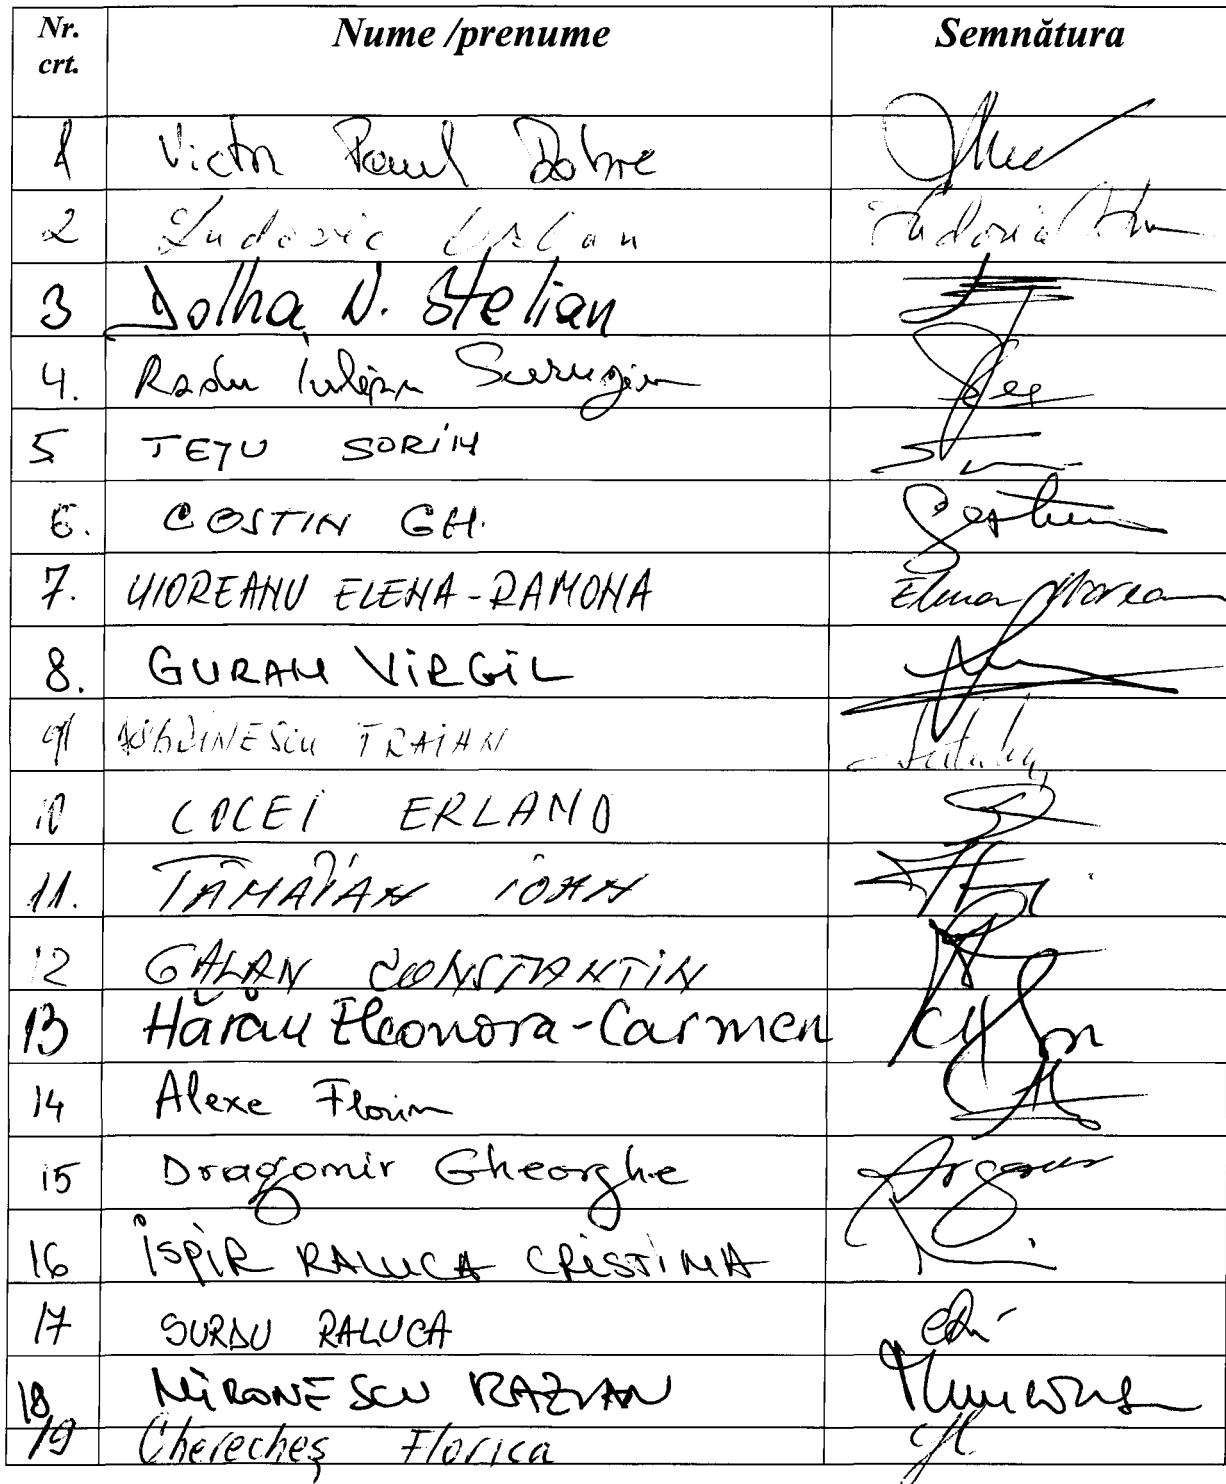 Nr. crt. Nume /prenume Semnătura
1 Victor Paul Dobre
2 Ludovic Orban
3 Dolha N. Stelian
4. Radu Iulian Surugiu
5 TEȚU SORIN
6. COSTIN GH.
7. UIOREANU ELENA-RAMONA
8. GURAN VIRGIL
9 TRAIAN
10 COCEI ERLAND
11. TĂMÂIAN IOAN
12 GALAN CONSTANTIN
13 Hărău Eleonora-Carmen
14 Alexe Florin
15 Dragomir Gheorghe
16 ISPIR RALUCA CRISTINA
17 SURDU RALUCA
18 MIRONESCU RAZVAN
19 Cherecheș Florica